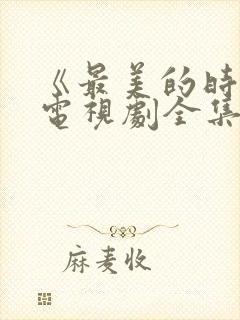 《最美的时
電視劇全集
麻麦收